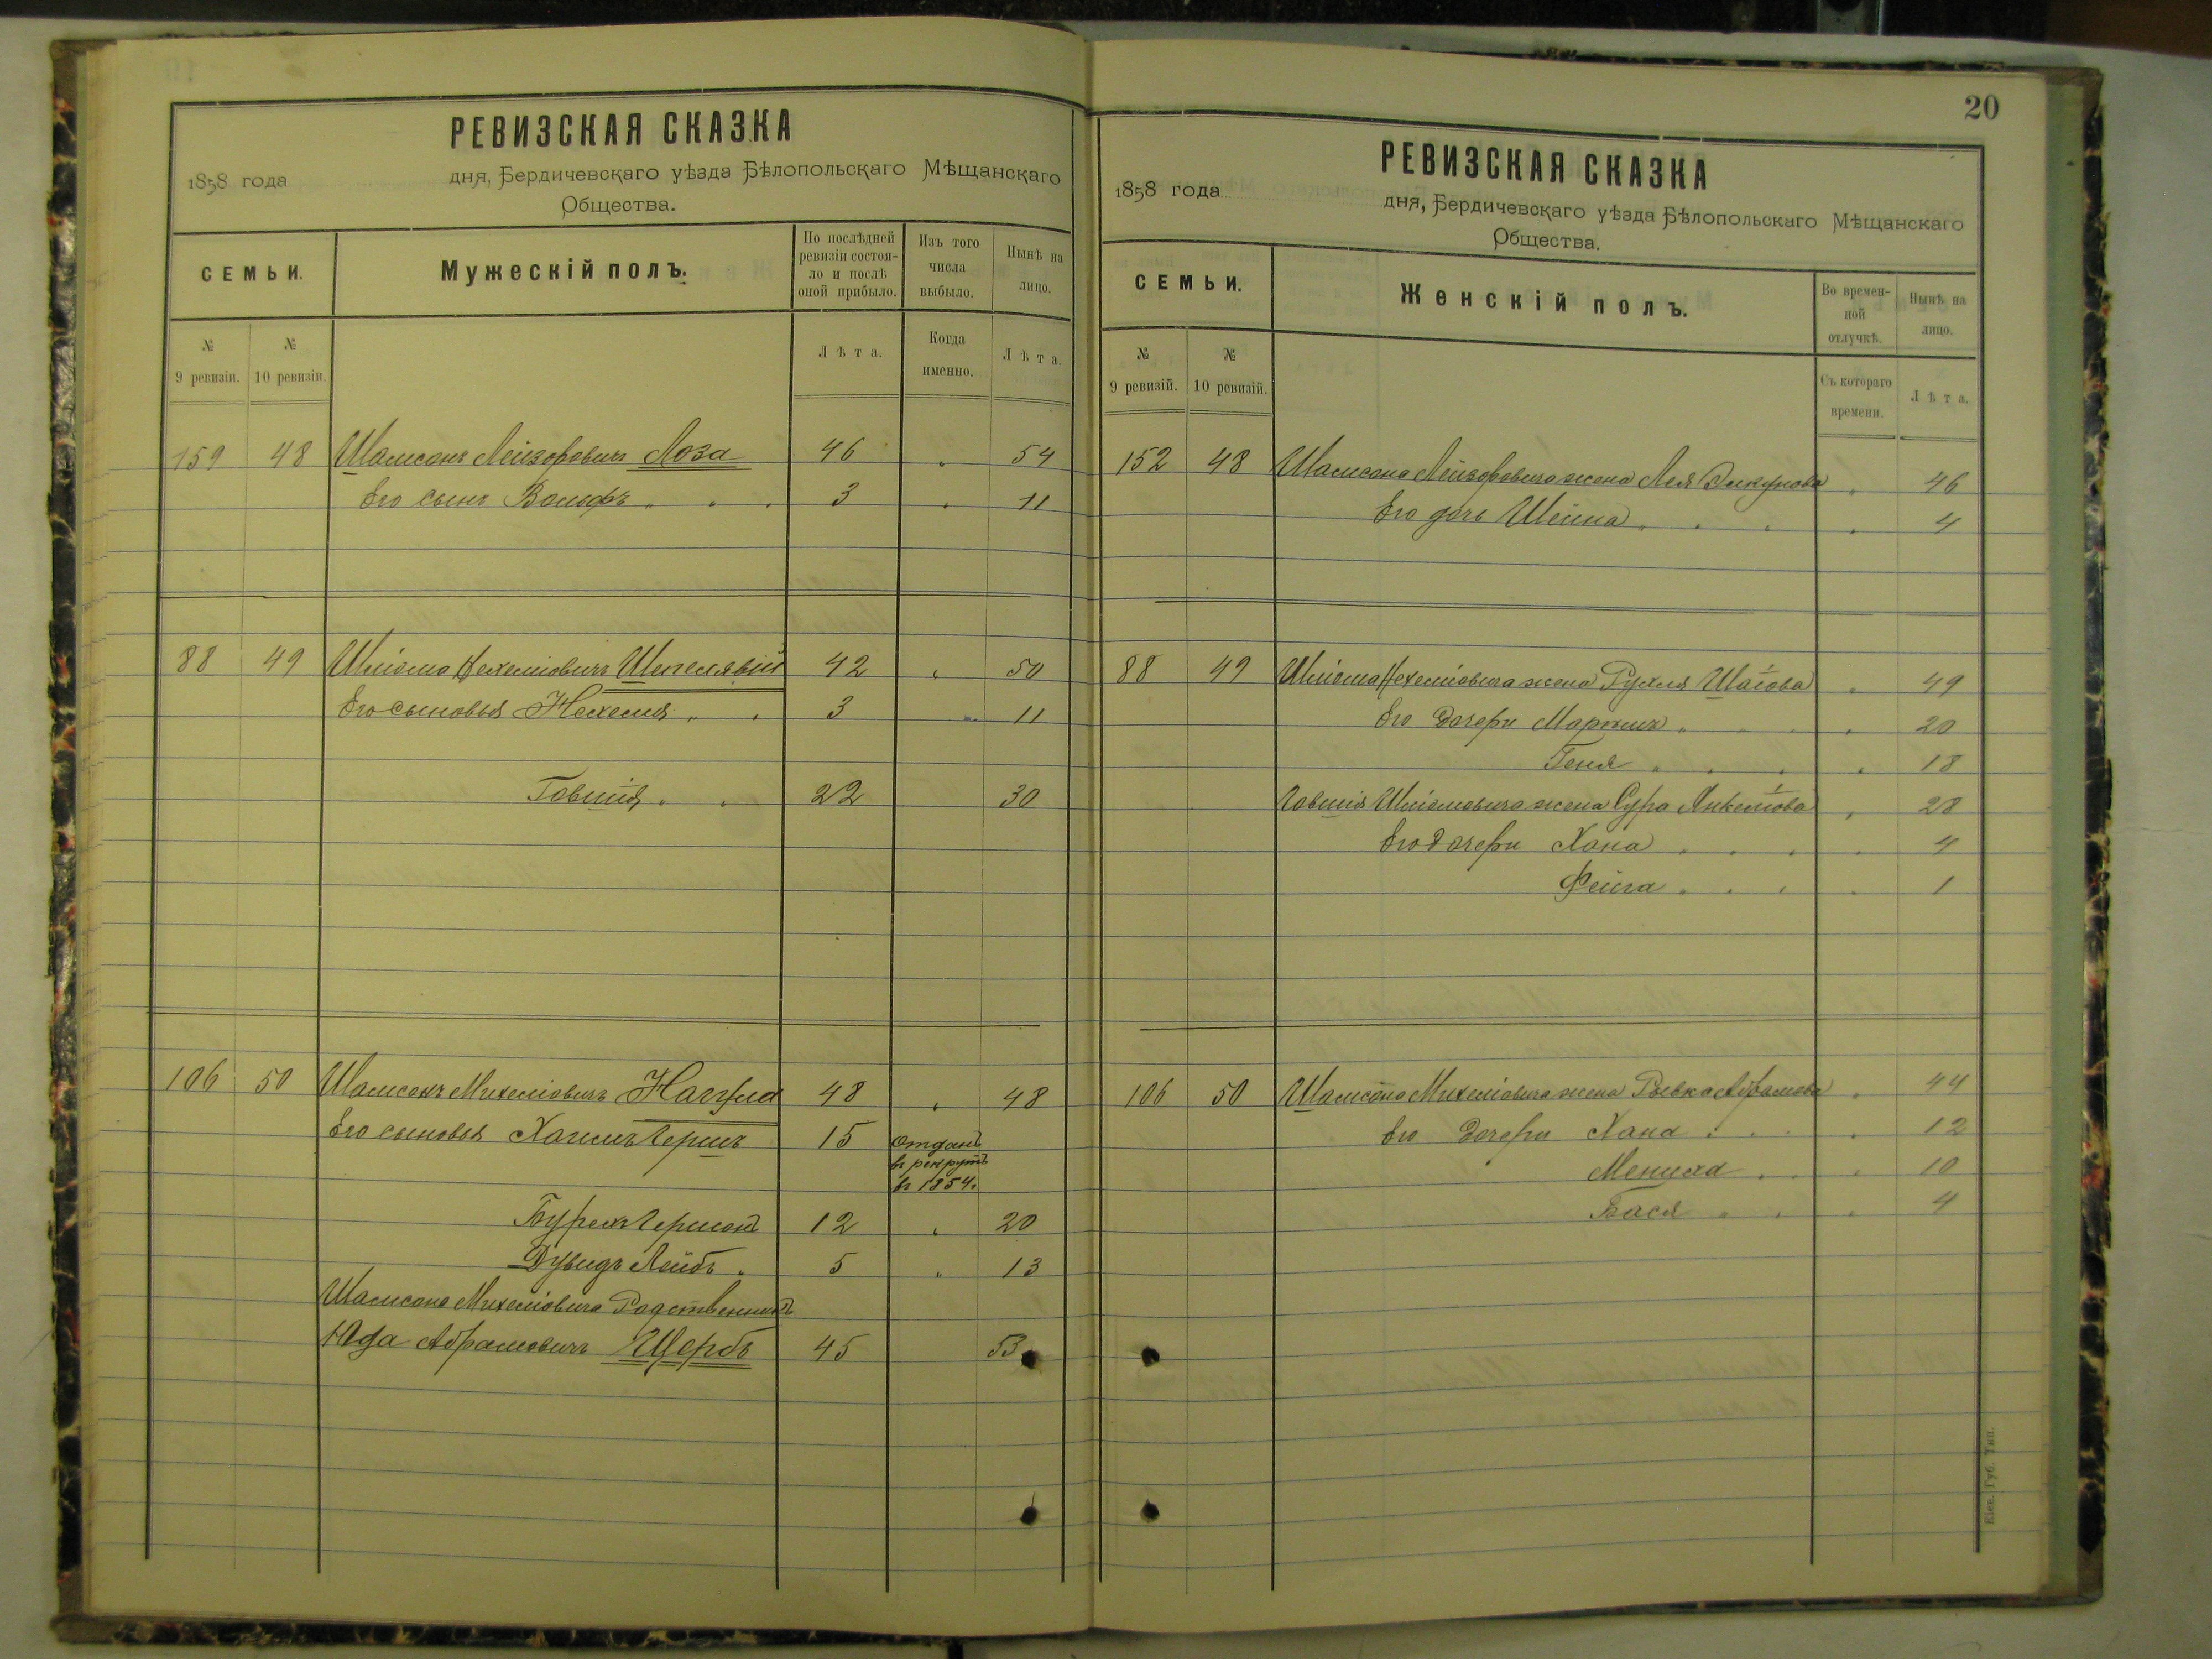 РЕВИЗСКАЯ СКАЗКА
1858 года дня, Бердичевскаго уѣзда Бѣлопольскаго Мѣщанскаго
Общества.
СЕМЬИ. Мужескій полъ. По послѣдней ревизіи состояло и послѣ оной прибыло. Изъ того числа выбыло. Нынѣ на лицо.
№ 9 ревизіи. № 10 ревизіи. Лѣта. Когда именно. Лѣта.
159 48 Шамсонъ Лейзоровичъ Лоза 46 " 54
Его сынъ Вольфъ " " " 3 " 11
88 49 Шліома Нехеміовичъ Шепелявый 42 " 50
Его сыновья Нехемія " " 3 " 11
Говшія " " 22 30
106 50 Шамсонъ Михеліовичъ Нагула 48 " 48
Его сыновья Хаимъ Гершъ 15 отданъ
въ рекрутъ
въ 1854.
Бурехъ Гершонъ 12 " 20
Дувидъ Лейбъ " 5 " 13
Шамсона Михеліовича Родственникъ
Юда Абрамовичъ Щербъ 45 53
20
РЕВИЗСКАЯ СКАЗКА
1858 года дня, Бердичевскаго уѣзда Бѣлопольскаго Мѣщанскаго
Общества.
СЕМЬИ. Женскій полъ. Во временной отлучкѣ. Нынѣ на лицо.
№ 9 ревизій. № 10 ревизій. Съ котораго времени. Лѣта.
152 48 Шамсона Лейзоровича жена Лея " 46
Его дочь Шейна " " " " 4
88 49 Шліома Нехеміовича жена Рухля Шаіова " 49
Его дочери Маріимъ " " " " 20
Геня " " " " 18
Говшія Шліомовича жена Сура Янкеліова " 28
Его дочери Хана " " " " 4
Фейга " " " " 1
106 50 Шамсона Михеліовича жена Рывка Абрамова " 44
Его дочери Хана " " " 12
Мениха " " " 10
Бася " " " 4
Кіев. Губ. Тип.